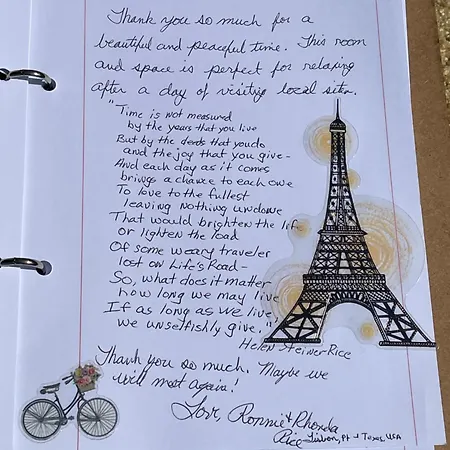 Thank you so much for a
beautiful and peaceful time. This room
and space is perfect for relaxing
after a day of visiting local sites.
"Time is not measured
by the years that you live
But by the deeds that you do
and the joy that you give-
And each day as it comes
brings a chance to each one
To love to the fullest
leaving nothing undone
That would brighten the life
or lighten the load
Of some weary traveler
lost on Life's Road-
So, what does it matter
how long we may live
If as long as we live,
we unselfishly give."
Helen Steiner Rice
Thank you so much. Maybe we
will meet again!
Love, Ronnie & Rhonda
Rice Lisbon, Pt & Texas, USA